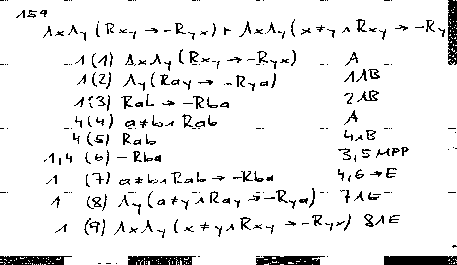 159
ΛxΛy (Rxy → -Ryx) ⊢ ΛxΛy (x≠y ∧ Rxy → -Ry
1 (1) ΛxΛy (Rxy → -Ryx) A
1 (2) Λy (Ray → -Rya) 1ΛB
1 (3) Rab → -Rba 2ΛB
4 (4) a≠b ∧ Rab A
4 (5) Rab 4∧B
1,4 (6) -Rba 3,5 MPP
1 (7) a≠b ∧ Rab → -Rba 4,6 →E
1 (8) Λy (a≠y ∧ Ray → -Rya) 7ΛE
1 (9) ΛxΛy (x≠y ∧ Rxy → -Ryx) 8ΛE